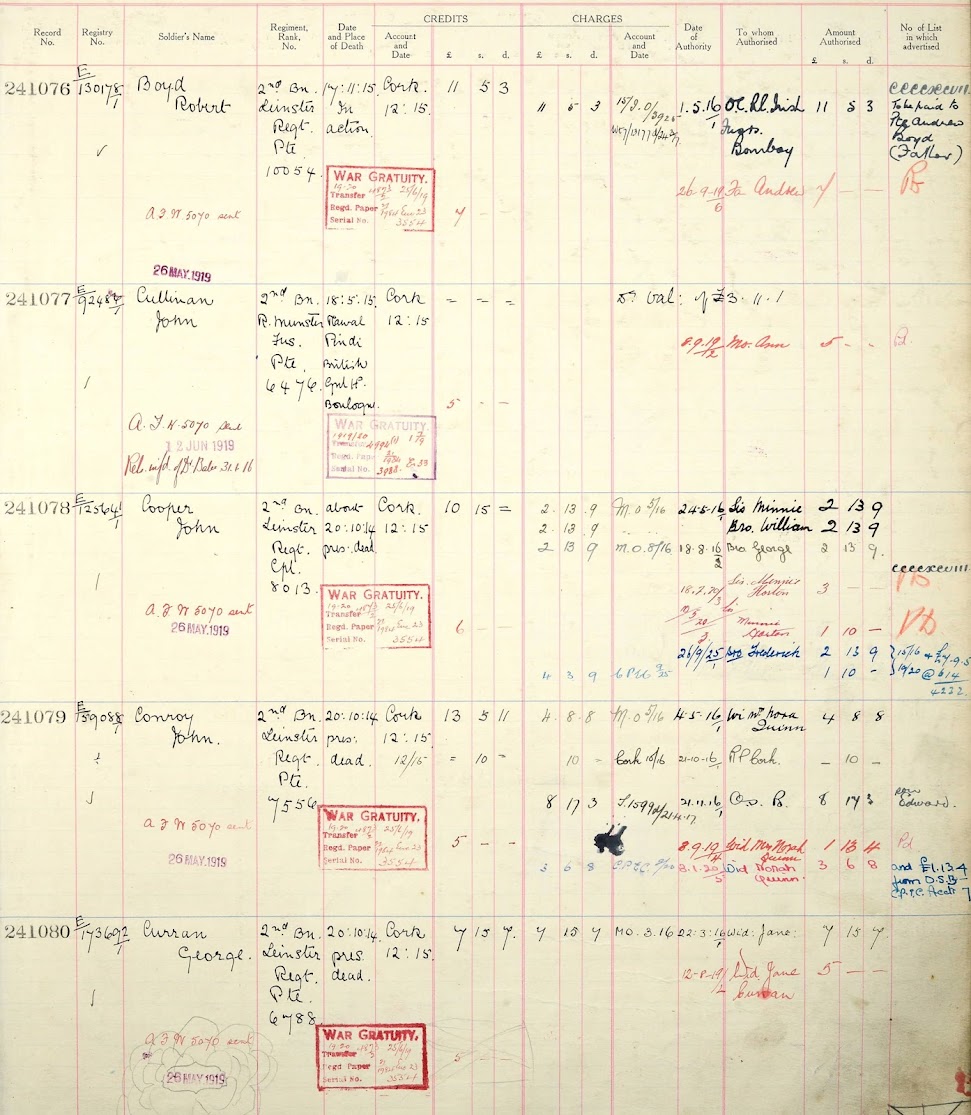 Record No.
Registry No.
Soldier's Name
Regiment, Rank, No.
Date and Place of Death
CREDITS
Account and Date
£ s. d.
CHARGES
£ s. d.
Account and Date
Date of Authority
To whom Authorised
Amount Authorised
£ s. d.
No. of List in which advertised
241076 E/130178/1 Boyd 2nd Bn. 17:11:15 Cork 11 5 3
Robert Leinster In 12:15. 11 5 3 1.5.16/1 O.C. Rl. Irish 11 5 3 To be paid to
Regt. action. Fusrs. Fa Andrew
Pte Bombay Boyd
10054 (Father)
WAR GRATUITY.
19-20 25/6/19
Transfer
Regd. Paper
Serial No. 3554
7 - - 26.9.19/6 Fa Andrew 7 - -
A.F.W. 5070 sent
26 MAY.1919
241077 Cullinan 2nd Bn. 18:5:15. Cork = = = Dr. Bal: of £3.11.1
John R. Munster Rawal 12:15
Fus. Pindi 8.9.19/2 Mo. Ann 5 - - Pd.
Pte British
6476. Gnl Hl.
Boulogne. 5 - -
A.F.W. 5070 sent
12 JUN 1919
WAR GRATUITY.
1919/20
Transfer
Regd. Paper
Serial No. 3988
241078 E/125641/1 Cooper 2nd Bn. about Cork. 10 15 = 2. 13. 9 M.O. 5/16 24.5.16/1 Sis Minnie 2 13 9
John Leinster 20:10:14 12:15 2. 13. 9 Bro. William 2 13 9
Regt. pres. dead. 2 13 9 M.O. 8/16 18.8.16/2 Bro George 2 13 9.
Cpl.
8013. Sis. Minnie
Horton 3 - -
A.F.W. 5070 sent
26 MAY.1919
WAR GRATUITY.
19-20 25/6/19
Transfer
Regd. Paper
Serial No. 3554
6 - - Sis Minnie
Horton 1 10 -
26/9/25/1 Bro Frederick 2 13 9
4 3 9 9/25 1 10 -
241079 E/159088/1 Conroy 2nd Bn. 20:10:14 Cork 13 5 11 4. 8. 8 M.O. 5/16 4.5.16/1 Wi Mrs Nora 4 8 8
John. Leinster pres: 12:15. Quinn
Regt. dead. 12/15 = 10 - 10 - Cork 10/16 21-10-16/1 RP Cork. - 10 -
Pte.
7556 8 17 3 21.11.16/1 8 17 3 Edward.
A.F.W. 5070 sent
26 MAY.1919
WAR GRATUITY.
19-20 25/6/19
Transfer
Regd. Paper
Serial No. 3554
5 - - 8.9.19/4 Wid Mrs Norah 1 13 4 Pd
Quinn
3 6 8 8.1.20/3 Wid Norah 3 6 8 and £1.13.4
Quinn. from D.S.B.
241080 E/173692/1 Curran 2nd Bn. 20:10:14. Cork 7 15 7. 7 15 7 MO. 3.16 22:3:16/1 Wid: Jane: 7 15 7
George. Leinster pres 12:15.
Regt. dead. 12-8-19/2 Wid. Jane 5 - -
Pte. Curran
6788
A.F.W. 5070 sent
26 MAY.1919
WAR GRATUITY.
19-20 25/6/19
Transfer
Regd Paper
Serial No. 3554
5